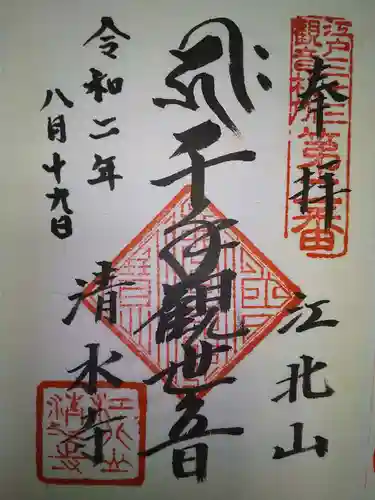 奉拝
江戸三十三
観音札所第二番
江北山
千手観世音
清水寺
令和二年
八月十九日